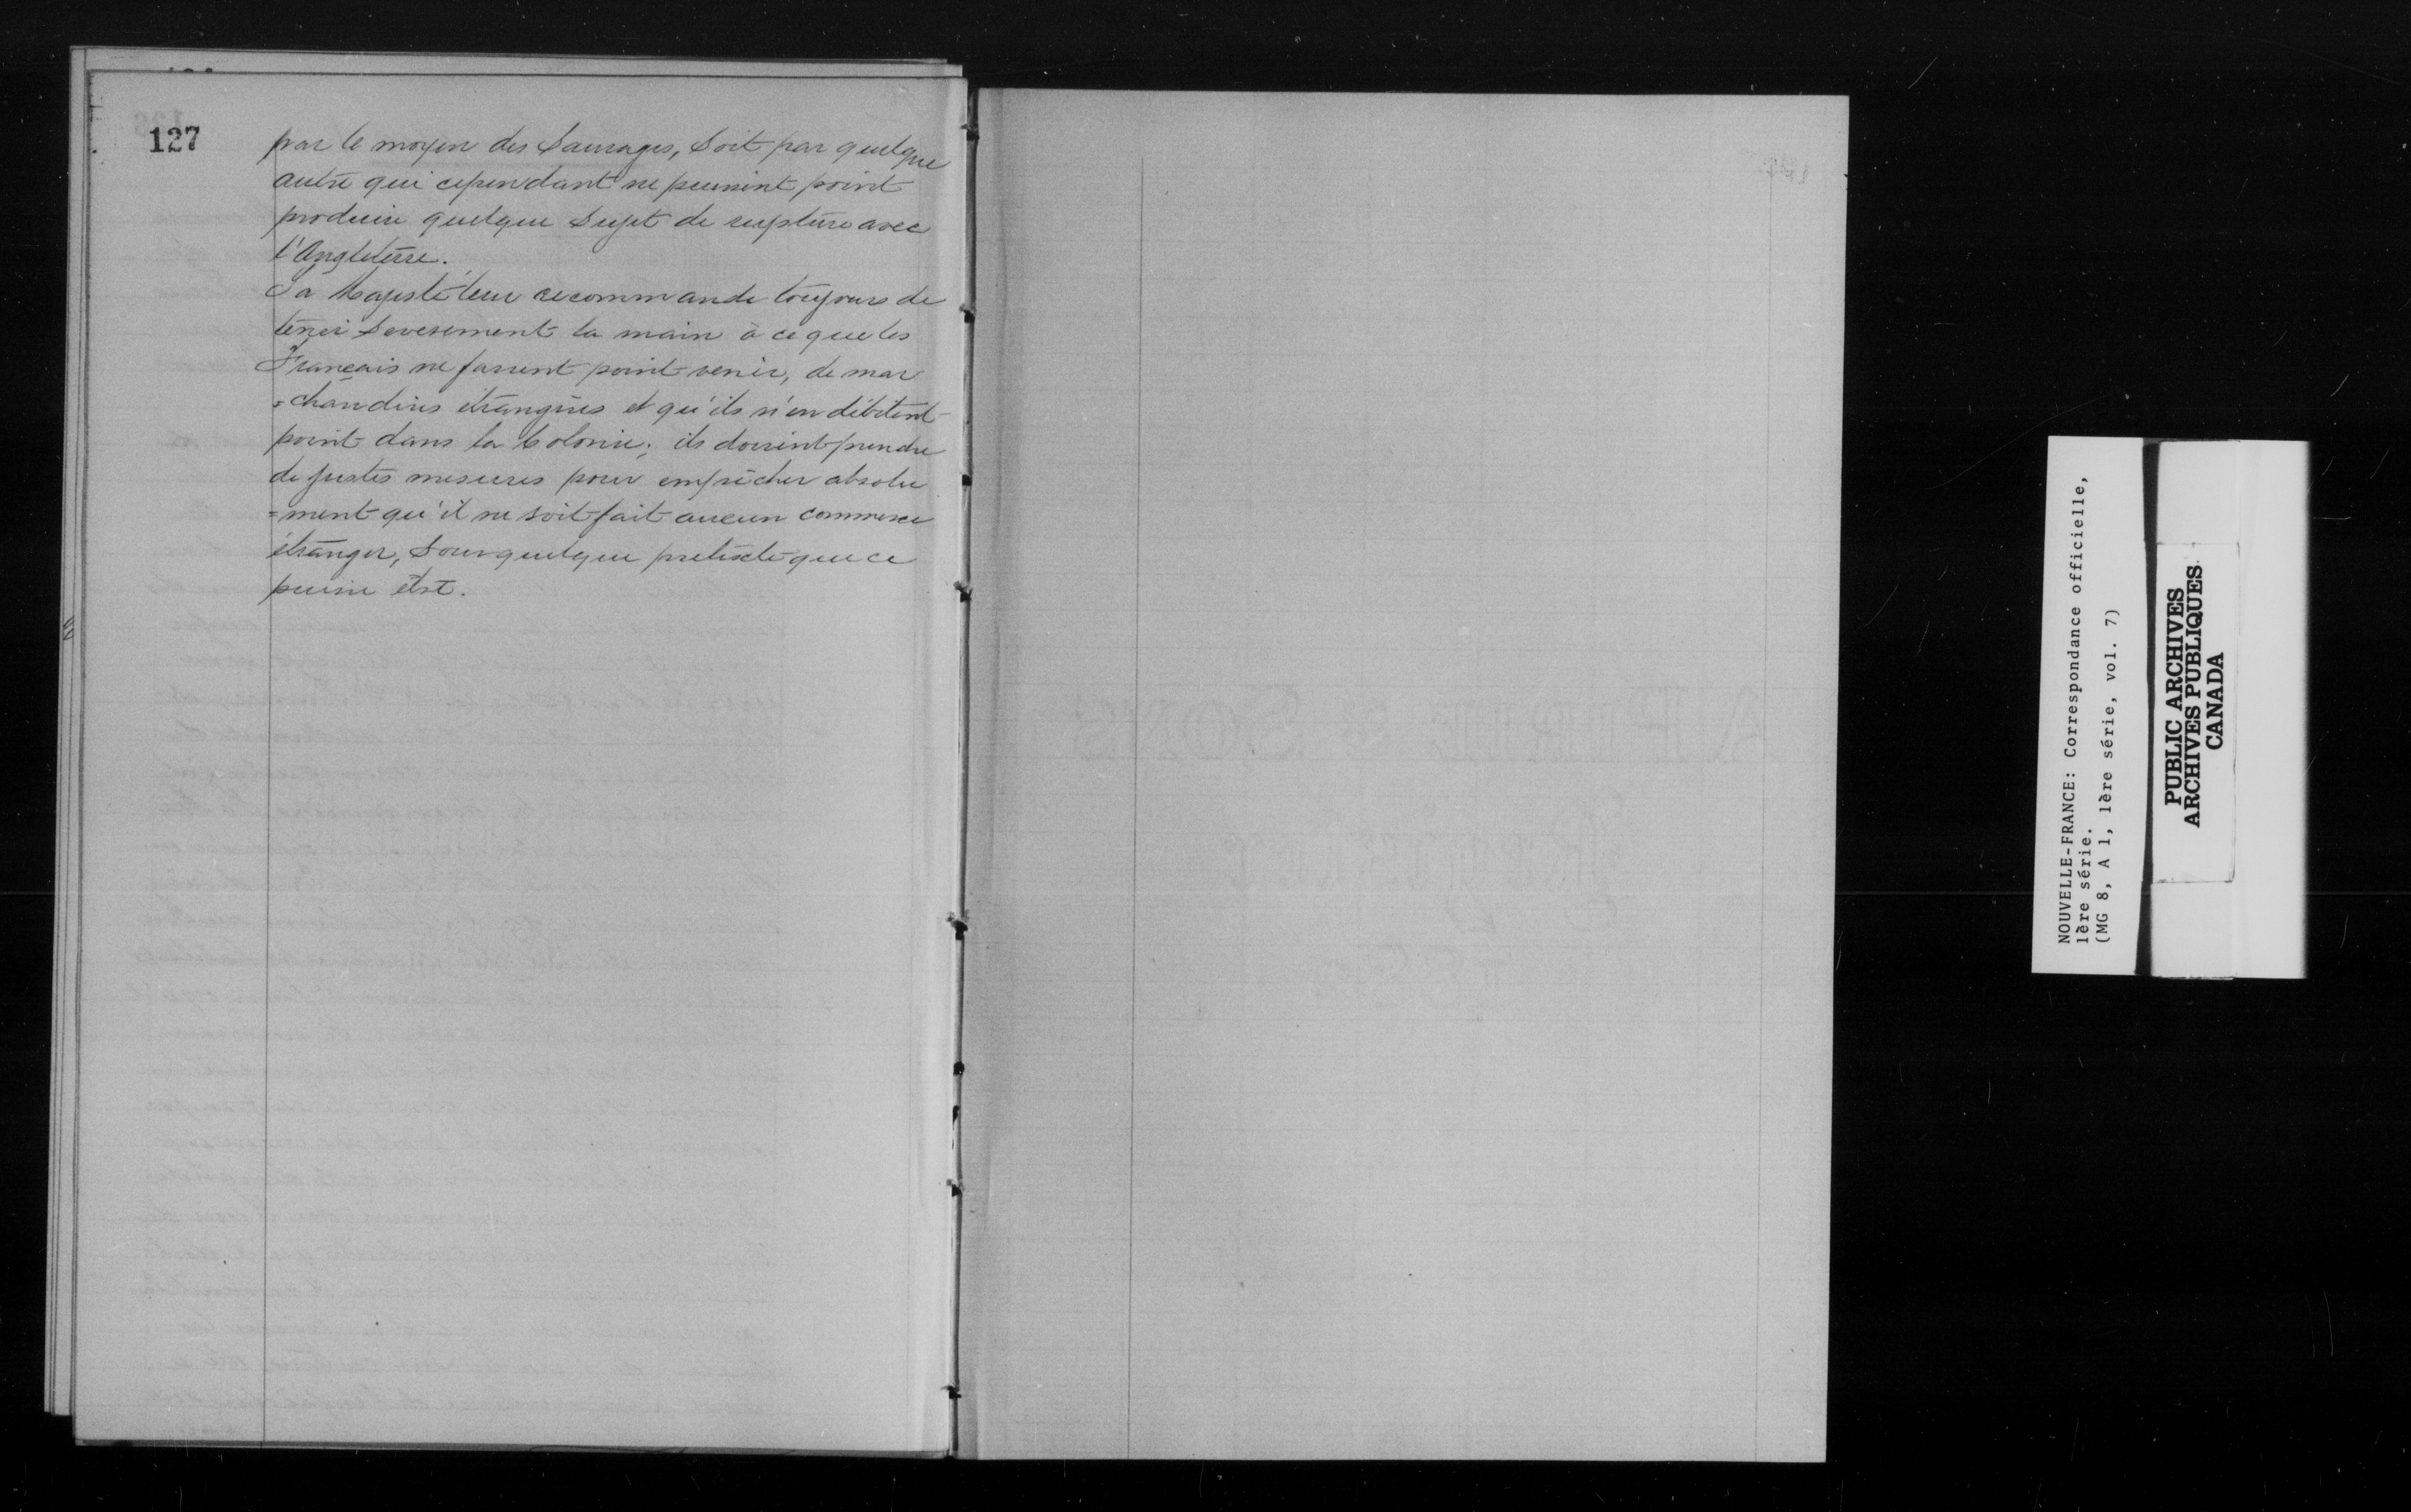 127
par le moyen des Sauvages, Soit par quelque
autre qui cependant ne puissent point
produire quelque Sujet de rupture avec
l'Angleterre.
Sa Majesté leur recommande toujours de
tenir Severement la main à ce que les
Français ne fassent point venir, de mar
=chandises étrangères et qu'ils n'en débitent
point dans la Colonie; ils doivent prendre
de justes mesures pour empêcher absolu
=ment qu'il ne soit fait aucun commerce
étranger, Sous quelque pretexte que ce
puisse être.
NOUVELLE-FRANCE: Correspondance officielle,
1ère série.
(MG 8, A 1, 1ère série, vol. 7)
PUBLIC ARCHIVES
ARCHIVES PUBLIQUES
CANADA